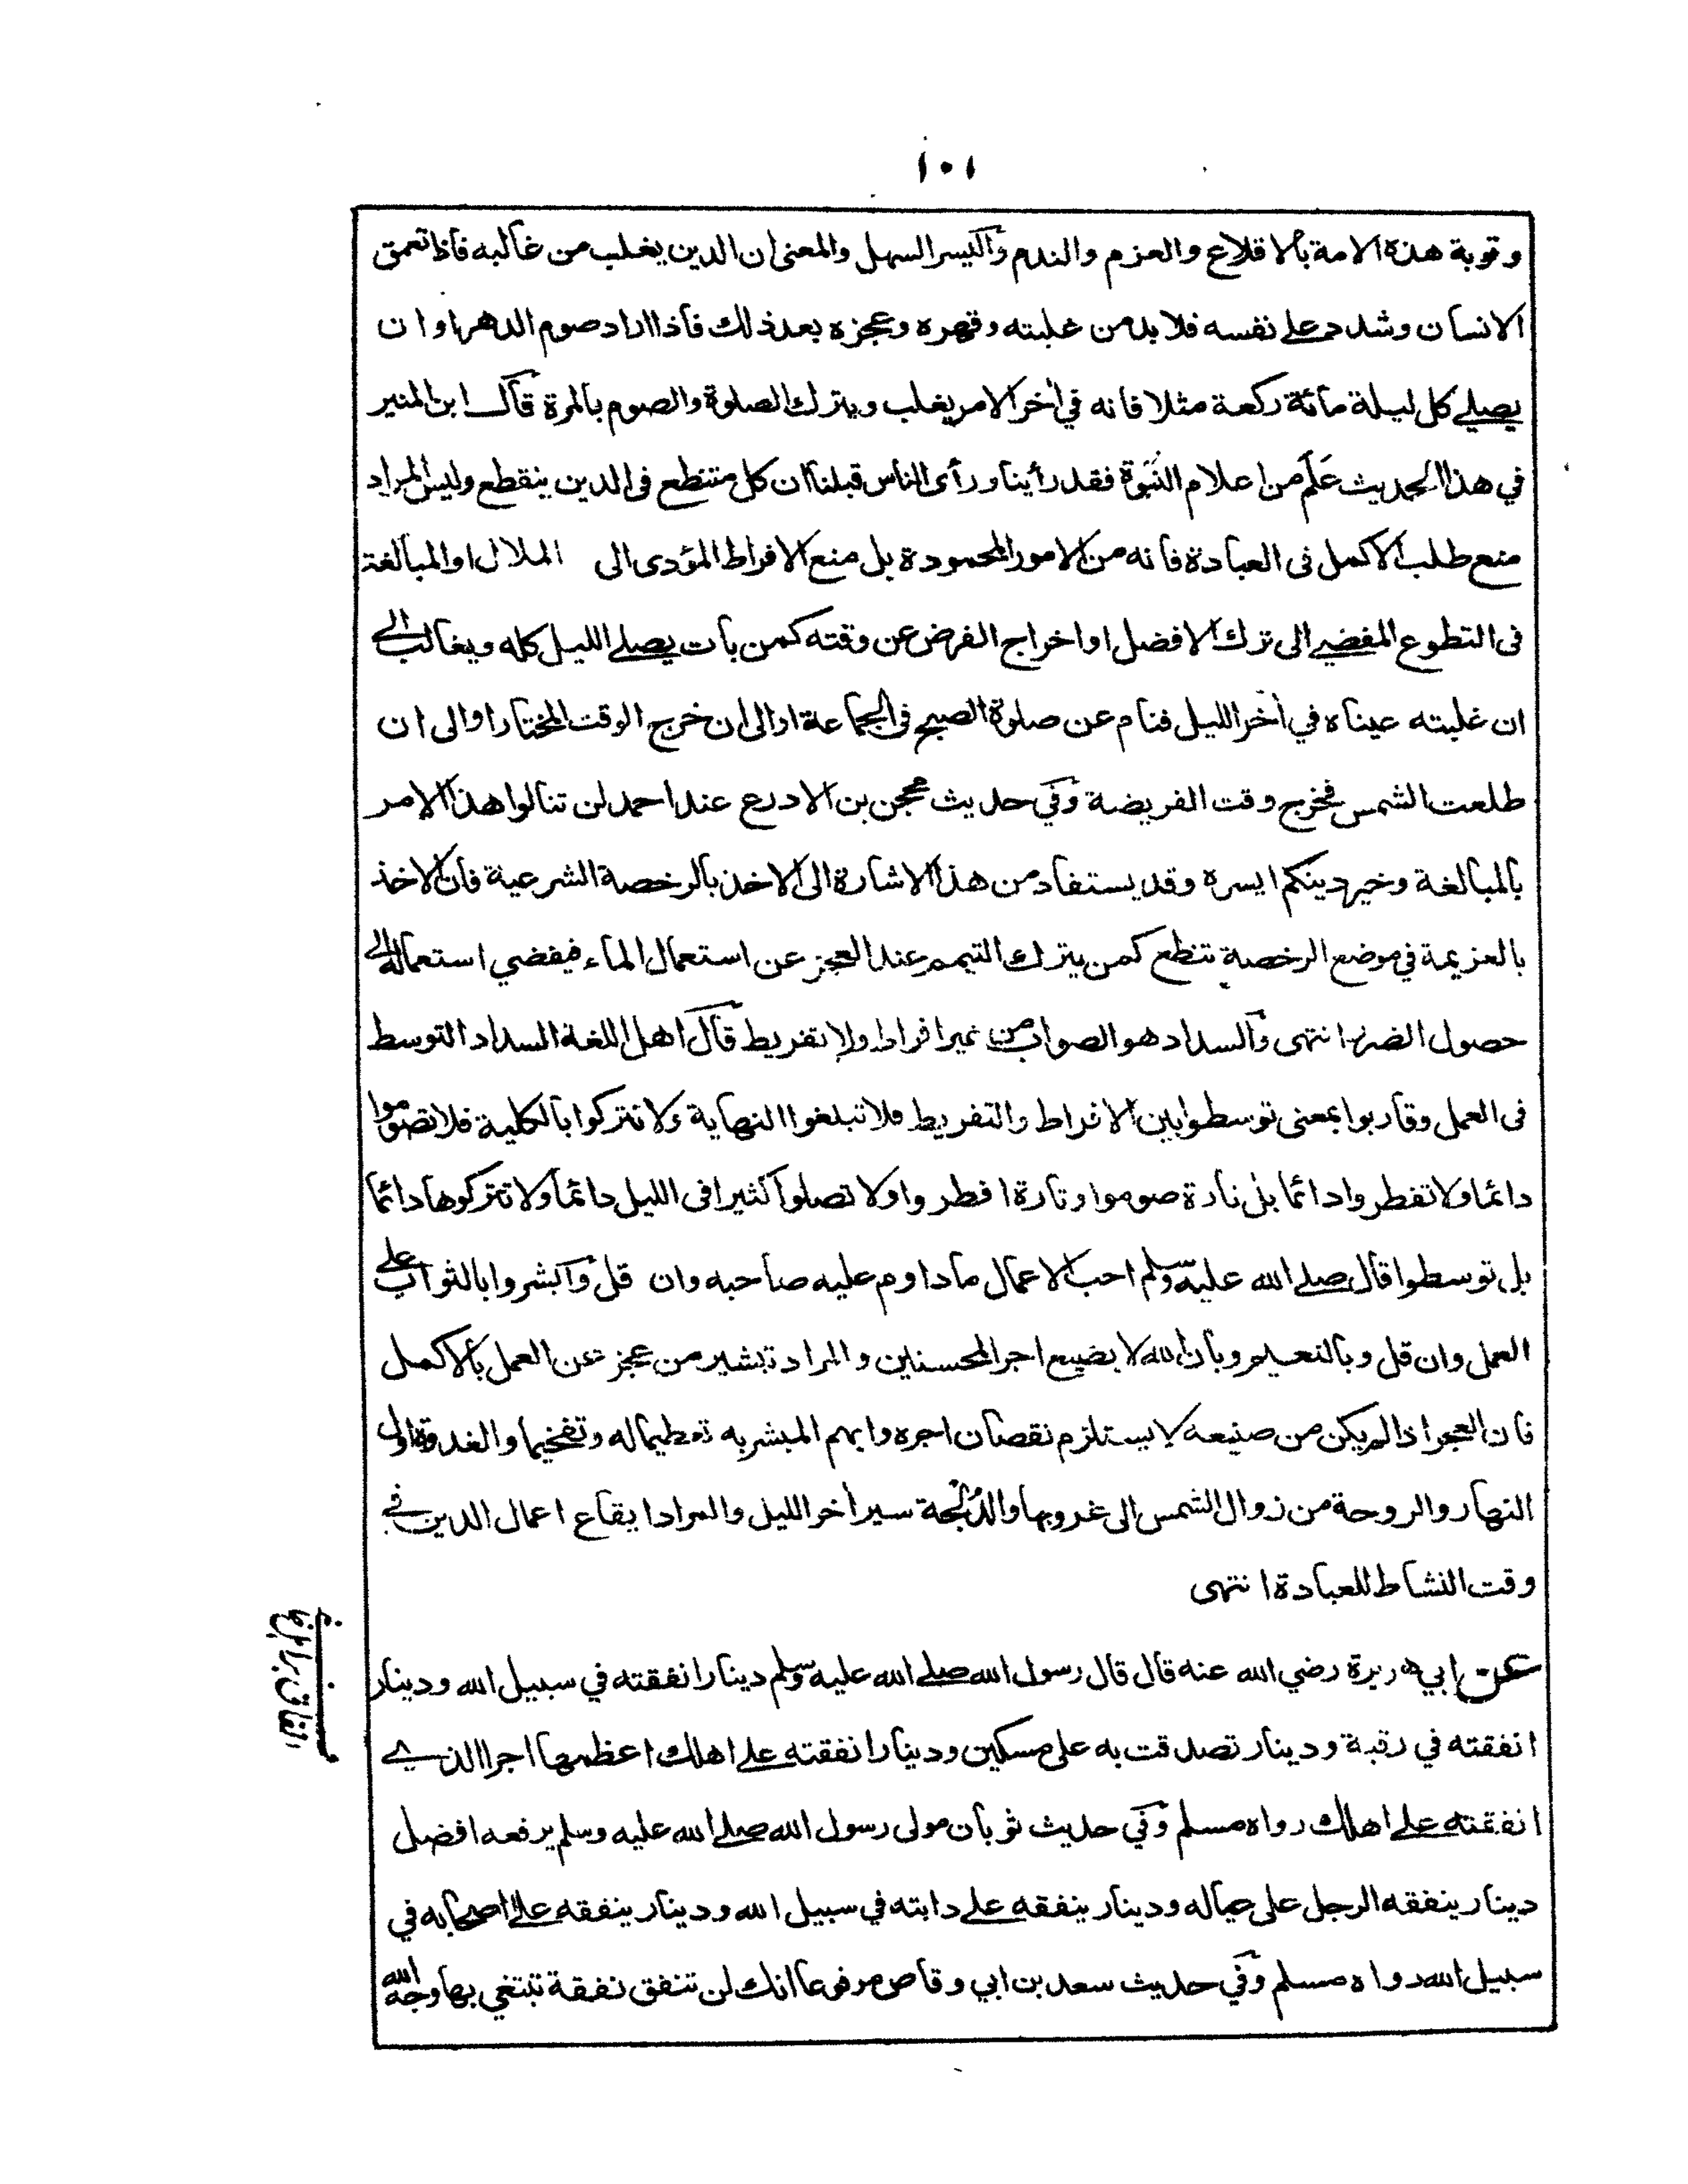 ١٠١
وتوبة هذه الامة بالاقلاع والعزم والندم واليسر السهل والمعنى ان الدين يغلب من غالبه فاذا تعمق
الانسان وشدد على نفسه فلا بد من غلبته وقهره وعجزه بعد ذلك فاذا اراد صوم الدهر او ان
يصلي كل ليلة مائة ركعة مثلا فانه في أخر الامر يغلب ويترك الصلوة والصوم بالمرة قال ابن المنير
في هذا الحديث عَلَم من اعلام النُبَوة فقد رأينا ورأى الناس قبلنا ان كل متنطع فى الدين ينقطع وليس المراد
منع طلب الاكمل فى العبادة فانه من الامور المحمودة بل منع الافراط المؤدى الى الملال او المبالغة
فى التطوع المفضي الى ترك الافضل او اخراج الفرض عن وقته كمن بات يصلي الليل كله ويغالب الى
ان غلبته عيناه في أخر الليل فنام عن صلوة الصبح فى الجماعة او الى ان خرج الوقت المختار او الى ان
طلعت الشمس فخرج وقت الفريضة وفي حديث محجن بن الادرع عند احمد لن تنالوا هذا الامر
بالمبالغة وخير دينكم ايسره وقد يستفاد من هذا الاشارة الى الاخذ بالرخصة الشرعية فان الاخذ
بالعزيمة في موضع الرخصة تنطع كمن يترك التيمم عند العجز عن استعمال الماء فيفضي استعماله الى
حصول الضرر انتهى والسداد هو الصواب من غير افراط ولا تفريط قال اهل اللغة السداد التوسط
فى العمل وقاربوا بمعنى توسطوا بين الافراط والتفريط فلا تبلغوا النهاية ولا تتركوا بالكلية فلا تصوموا
دائما ولا تفطروا دائما بل تارة صوموا وتارة افطروا ولا تصلوا كثيرا فى الليل دائما ولا تتركوها دائما
بل توسطوا قال صلى الله عليه وسلم احب الاعمال ما داوم عليه صاحبه وان قل وابشروا بالثواب على
العمل وان قل وبالنعيم وبان الله لا يضيع اجر المحسنين والمراد تبشير من عجز عن العمل بالاكمل
فان العجز اذا لم يكن من صنيعه لا يستلزم نقصان اجره وابهم المبشر به تعظيما له وتفخيما والغدوة اول
النهار والروحة من زوال الشمس الى غروبها والدُلجة سير أخر الليل والمراد ايقاع اعمال الدين في
وقت النشاط للعبادة انتهى
عن ابي هريرة رضي الله عنه قال قال رسول الله صلى الله عليه وسلم دينارا انفقته في سبيل الله ودينار
انفقته في رقبة ودينار تصدقت به على مسكين ودينارا انفقته على اهلك اعظمها اجرا الذي
انفقته على اهلك رواه مسلم وفي حديث ثوبان مولى رسول الله صلى الله عليه وسلم يرفعه افضل
دينار ينفقه الرجل على عياله ودينار ينفقه على دابته في سبيل الله ودينار ينفقه على اصحابه في
سبيل الله رواه مسلم وفي حديث سعد بن ابي وقاص مرفوعا انك لن تنفق نفقة تبتغي بها وجه الله